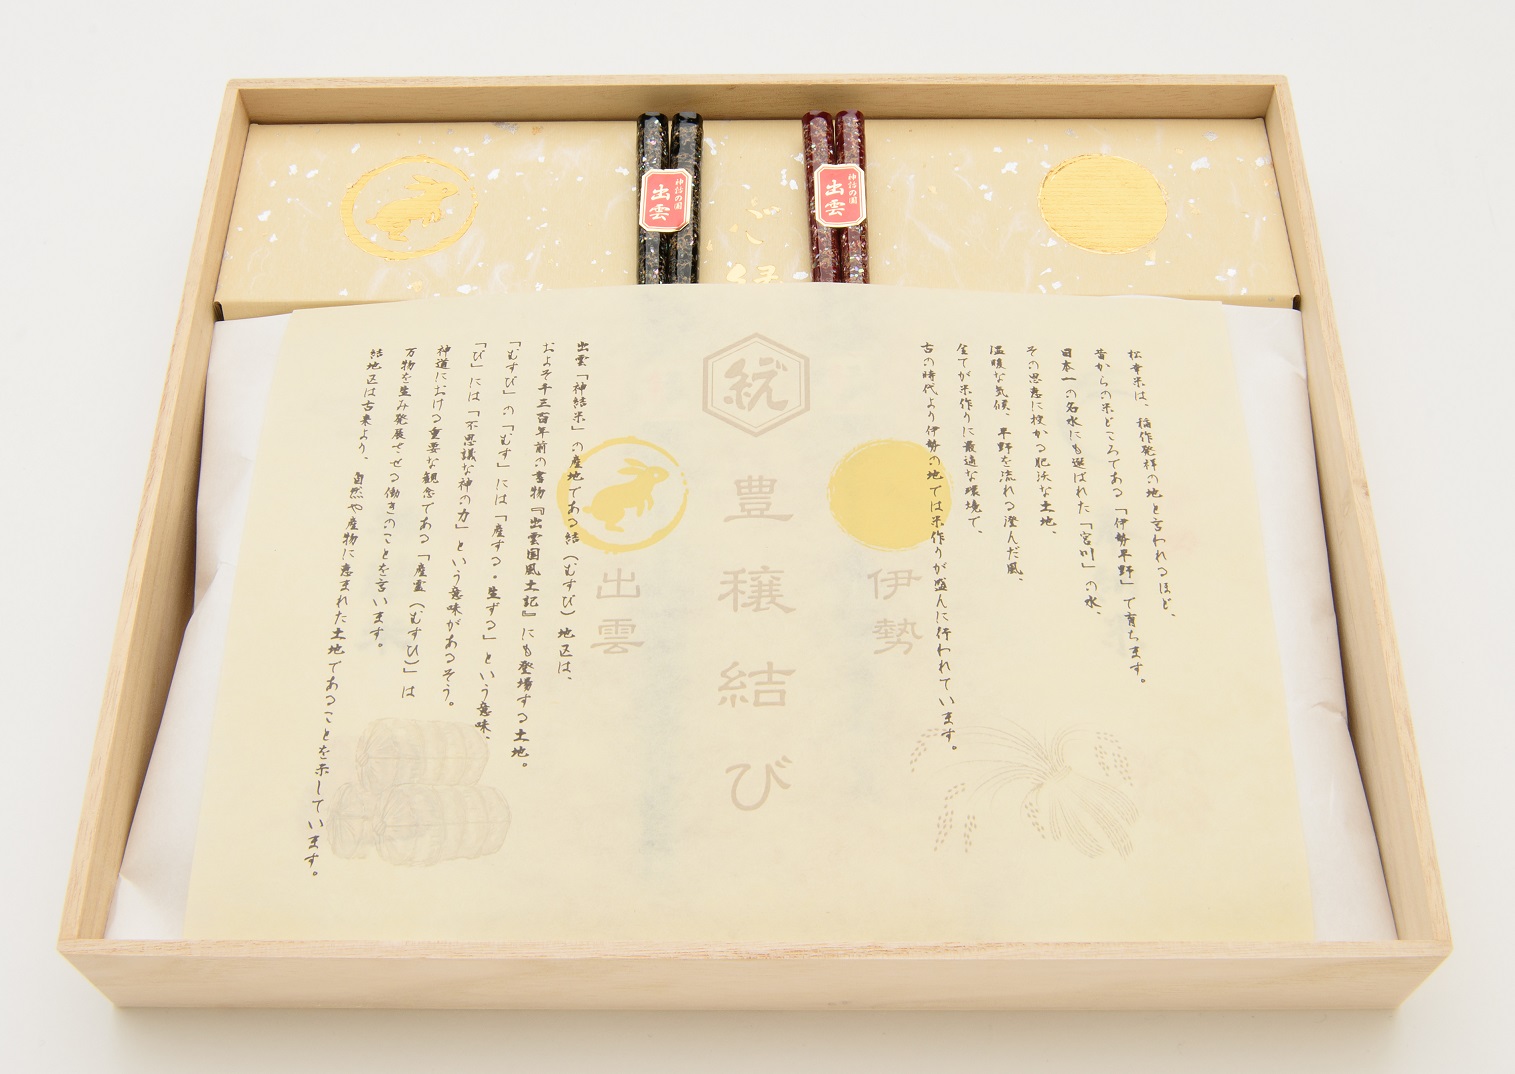 神話の国
出雲
神話の国
出雲
ご縁
統
豊穣結び
伊勢
出雲
松幸米は、稲作発祥の地と言われるほど、
昔からの米どころである「伊勢平野」で育ちます。
日本一の名水にも選ばれた「宮川」の水、
その恩恵に授かる肥沃な土地、
温暖な気候、平野を流れる澄んだ風、
全てが米作りに最適な環境で、
古の時代より伊勢の地では米作りが盛んに行われています。
出雲「神結米」の産地である結(むすび)地区は、
およそ千三百年前の書物『出雲国風土記』にも登場する土地。
「むすび」の「むす」には「産する・生ずる」という意味、
「び」には「不思議な神の力」という意味があるそう。
神道における重要な観念である「産霊(むすひ)」は
万物を生み発展させる働きのことを言います。
結地区は古来より、自然や産物に恵まれた土地であることを示しています。